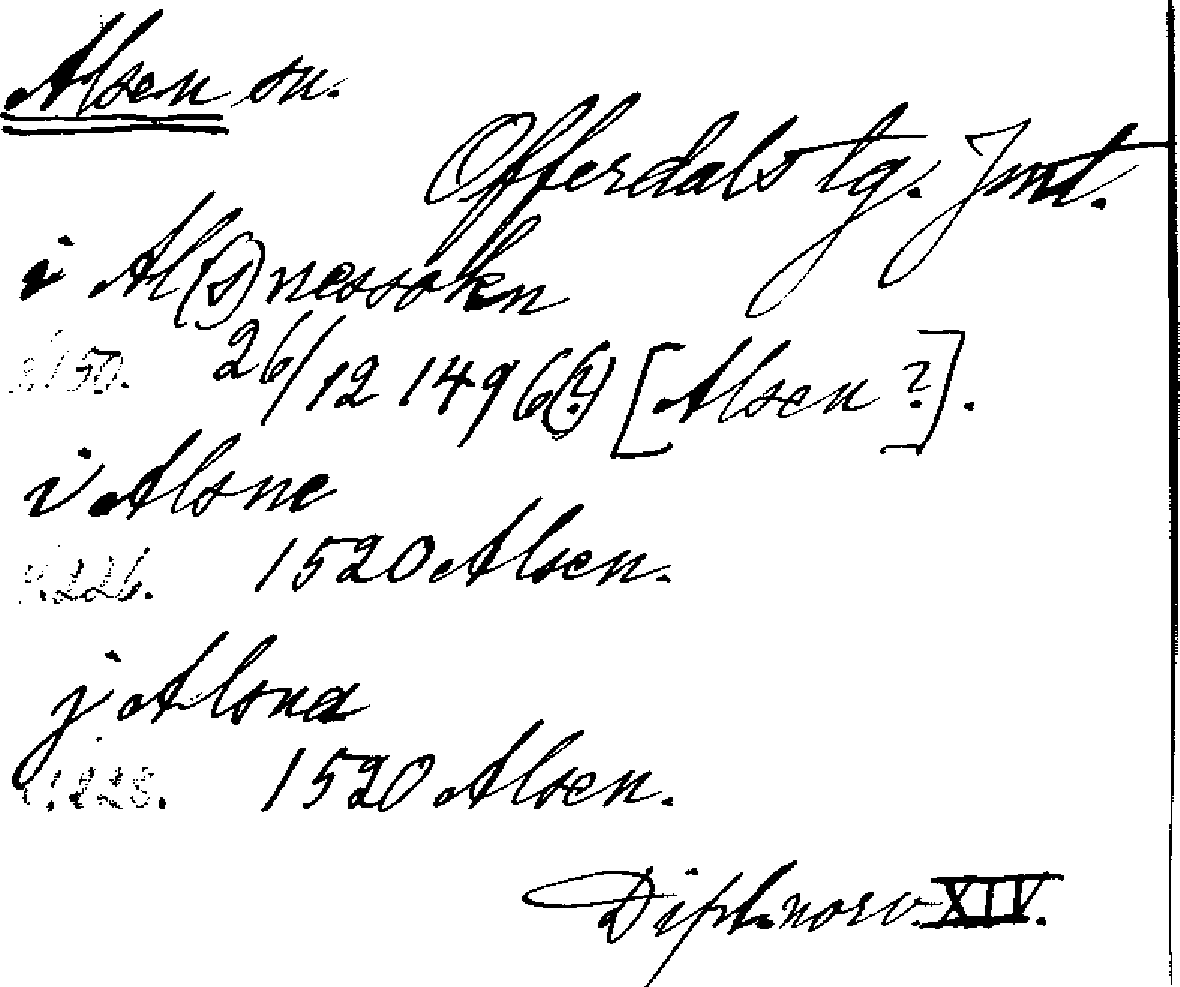 Alsen sn.
Offerdals tg. Jmt.
i Al(s)nessokn
s. 150. 26/12 1496(?) [Alsen ?].
i Alsne
s. 226. 1520 Alsen.
j Alsna
s. 228. 1520 Alsen.
Dipl. norv. XIV.